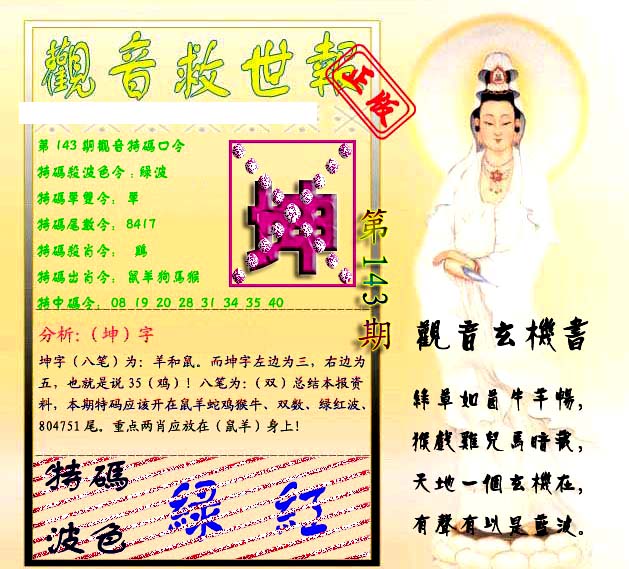 觀音救世報
正版
第143期觀音特碼口令
特碼殺波色令：綠波
特碼單雙令： 單
特碼尾數令： 8417
特碼殺肖令： 鷄
特碼出肖令： 鼠羊狗馬猴
特中碼令： 08 19 20 28 31 34 35 40
坤
第143期
分析：（坤）字
坤字（八笔）为：羊和鼠。而坤字左边为三，右边为
五，也就是说35（鸡）！八笔为：（双）总结本报资
料，本期特码应该开在鼠羊蛇鸡猴牛、双数、绿红波、
804751尾。重点两肖应放在（鼠羊）身上！
特碼
波色
綠 紅
觀音玄機書
綠草如茵牛羊暢，
猴戲雞兒馬啼
天地一個玄機在，
有聲有 是藍波。